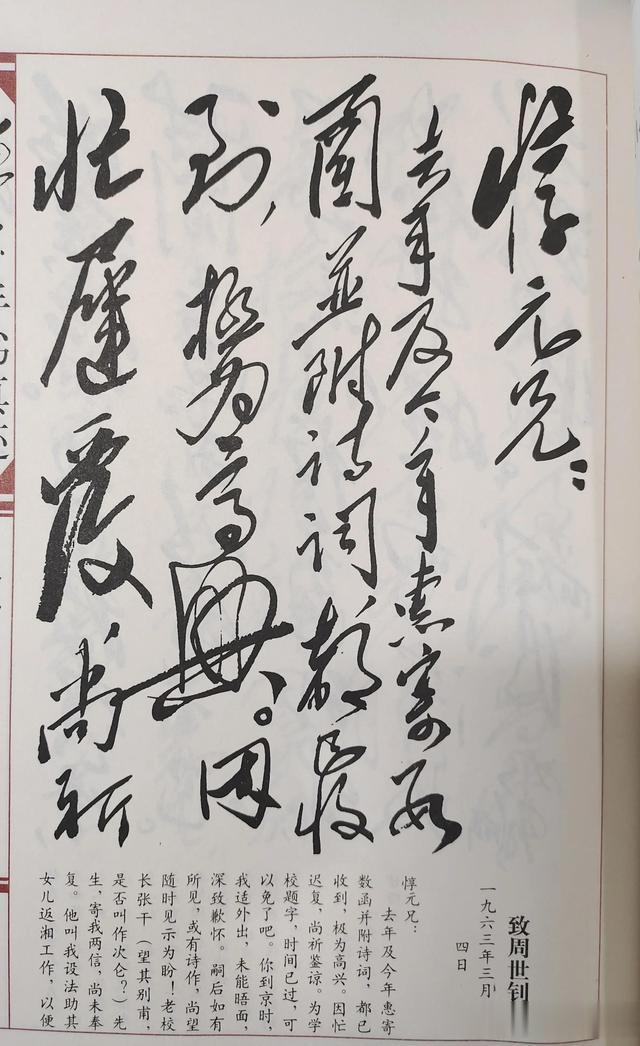 惇元兄：
去年及今年惠寄数
函並附诗词，都已收
到，極为高興。因
忙遲覆尚祈
致周世钊
一九六三年三月
四日
惇元兄：
去年及今年惠寄
数函并附诗词，都已
收到，极为高兴。因忙
迟复，尚祈鉴谅。为学
校题字，时间已过，可
以免了吧。你到京时，
我适外出，未能晤面，
深致歉怀。嗣后如有
所见，或有诗作，尚望
随时见示为盼！老校
长张干（望其别甫，
是否叫作次仑？）先
生，寄我两信，尚未奉
复。他叫我设法助其
女儿返湘工作，以便